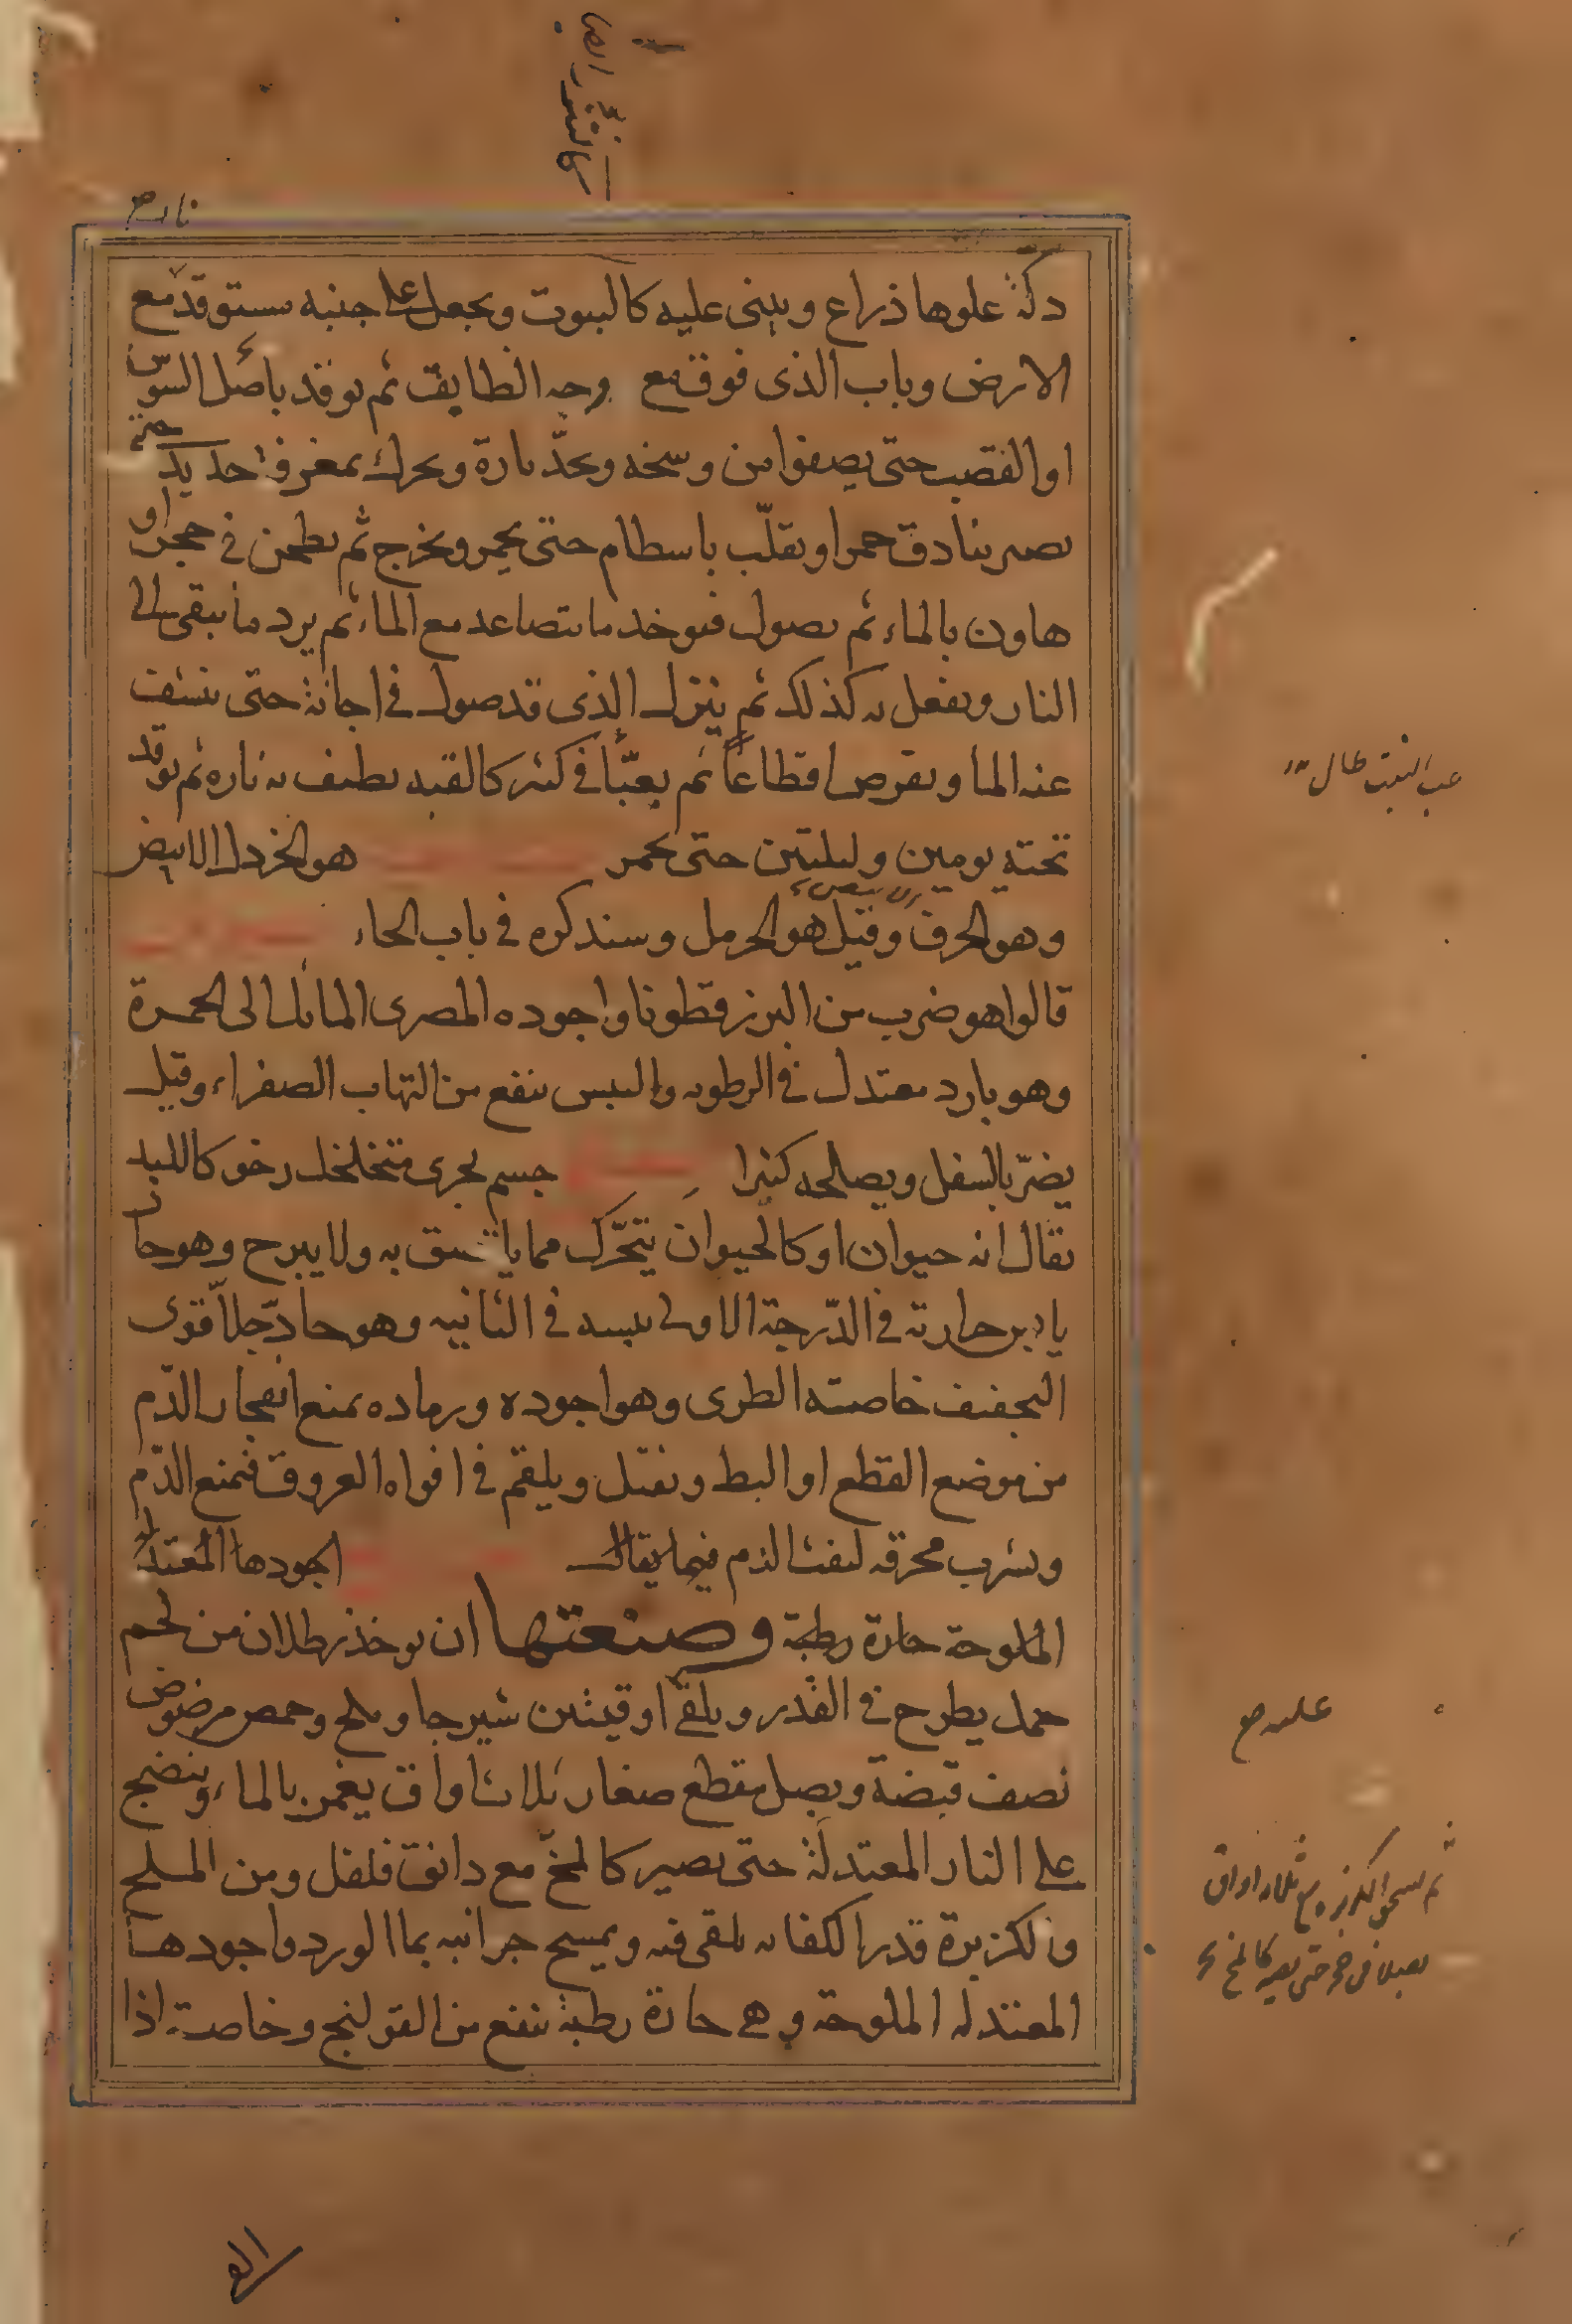 دكة علوها ذراع ويبنى عليه كالبيوت ويجعل على جنبه مستوقد مع
الارض وباب الذى فوق مع وجه الطابق ثم يوقد باصل السوس
او القصب حتى يصفوا من وسخه ويحد ناره ويحرك بمغرفة حديد حتى
يصير بنادق حمرا ويقلب باسطام حتى يحمر ويخرج ثم يطحن فى حجر او
هاون بالماء ثم يصول فيوخد ما يتصاعد مع الماء ثم يرد ما يبقى الى
النار ويفعل به كذلك ثم ينزل الذى قد صول فى اجانة حتى ينشف
عنه الما ويقرص اقطاعا ثم يعبا فى كالقبه يطيف به ناره ثم يوقد
تحته يومين وليلتين حتى يحمر هو الخردل الابيض
وهو الحرف وقيل هو الحرمل وسنذكره فى باب الحاء
قالوا هو ضرب من البزر قطونا واجوده المصرى المائل الى الحمرة
وهو بارد معتدل فى الرطوبه واليبس ينفع من التهاب الصفراء وقيل
يضر بالسفل ويصلحه كثيرا جسم بحرى متخلخل رخو كاللبد
يقال انه حيوان او كالحيوان يتحرك مما به ولا يبرح وهو حار
يابس حرارته فى الدرجة الاولى يبسه فى الثانيه وهو حاد جلا قوى
التجفيف خاصته الطرى وهو اجوده ورماده يمنع انفجار الدم
من موضع القطع او البط ويفتل ويلقم فى افواه العروق فيمنع الدم
ويشرب محرقه لنفث الدم فيما يقال اجودها المعتدله
الملوحة حارة رطبة وصنعتها ان يوخذ رطلان من لحم
حمل يطرح فى القدر ويلقى اوقيتين شيرجا وملح وحمص مرضوض
نصف قبضة وبصل مقطع صغار ثلاث اواق يغمر بالماء وينضج
على النار المعتدلة حتى يصير كالمخ مع دانق فلفل ومن الملح
والكزبرة قدر الكفايه يلقى فيه ويمسح جوانبه بما الورد واجودها
المعتدله الملوحة وهى حارة رطبة ينفع من القولنج وخاصته اذا
ثم الكزبره مع ثلاث اواق
حتى يصير كالمخ